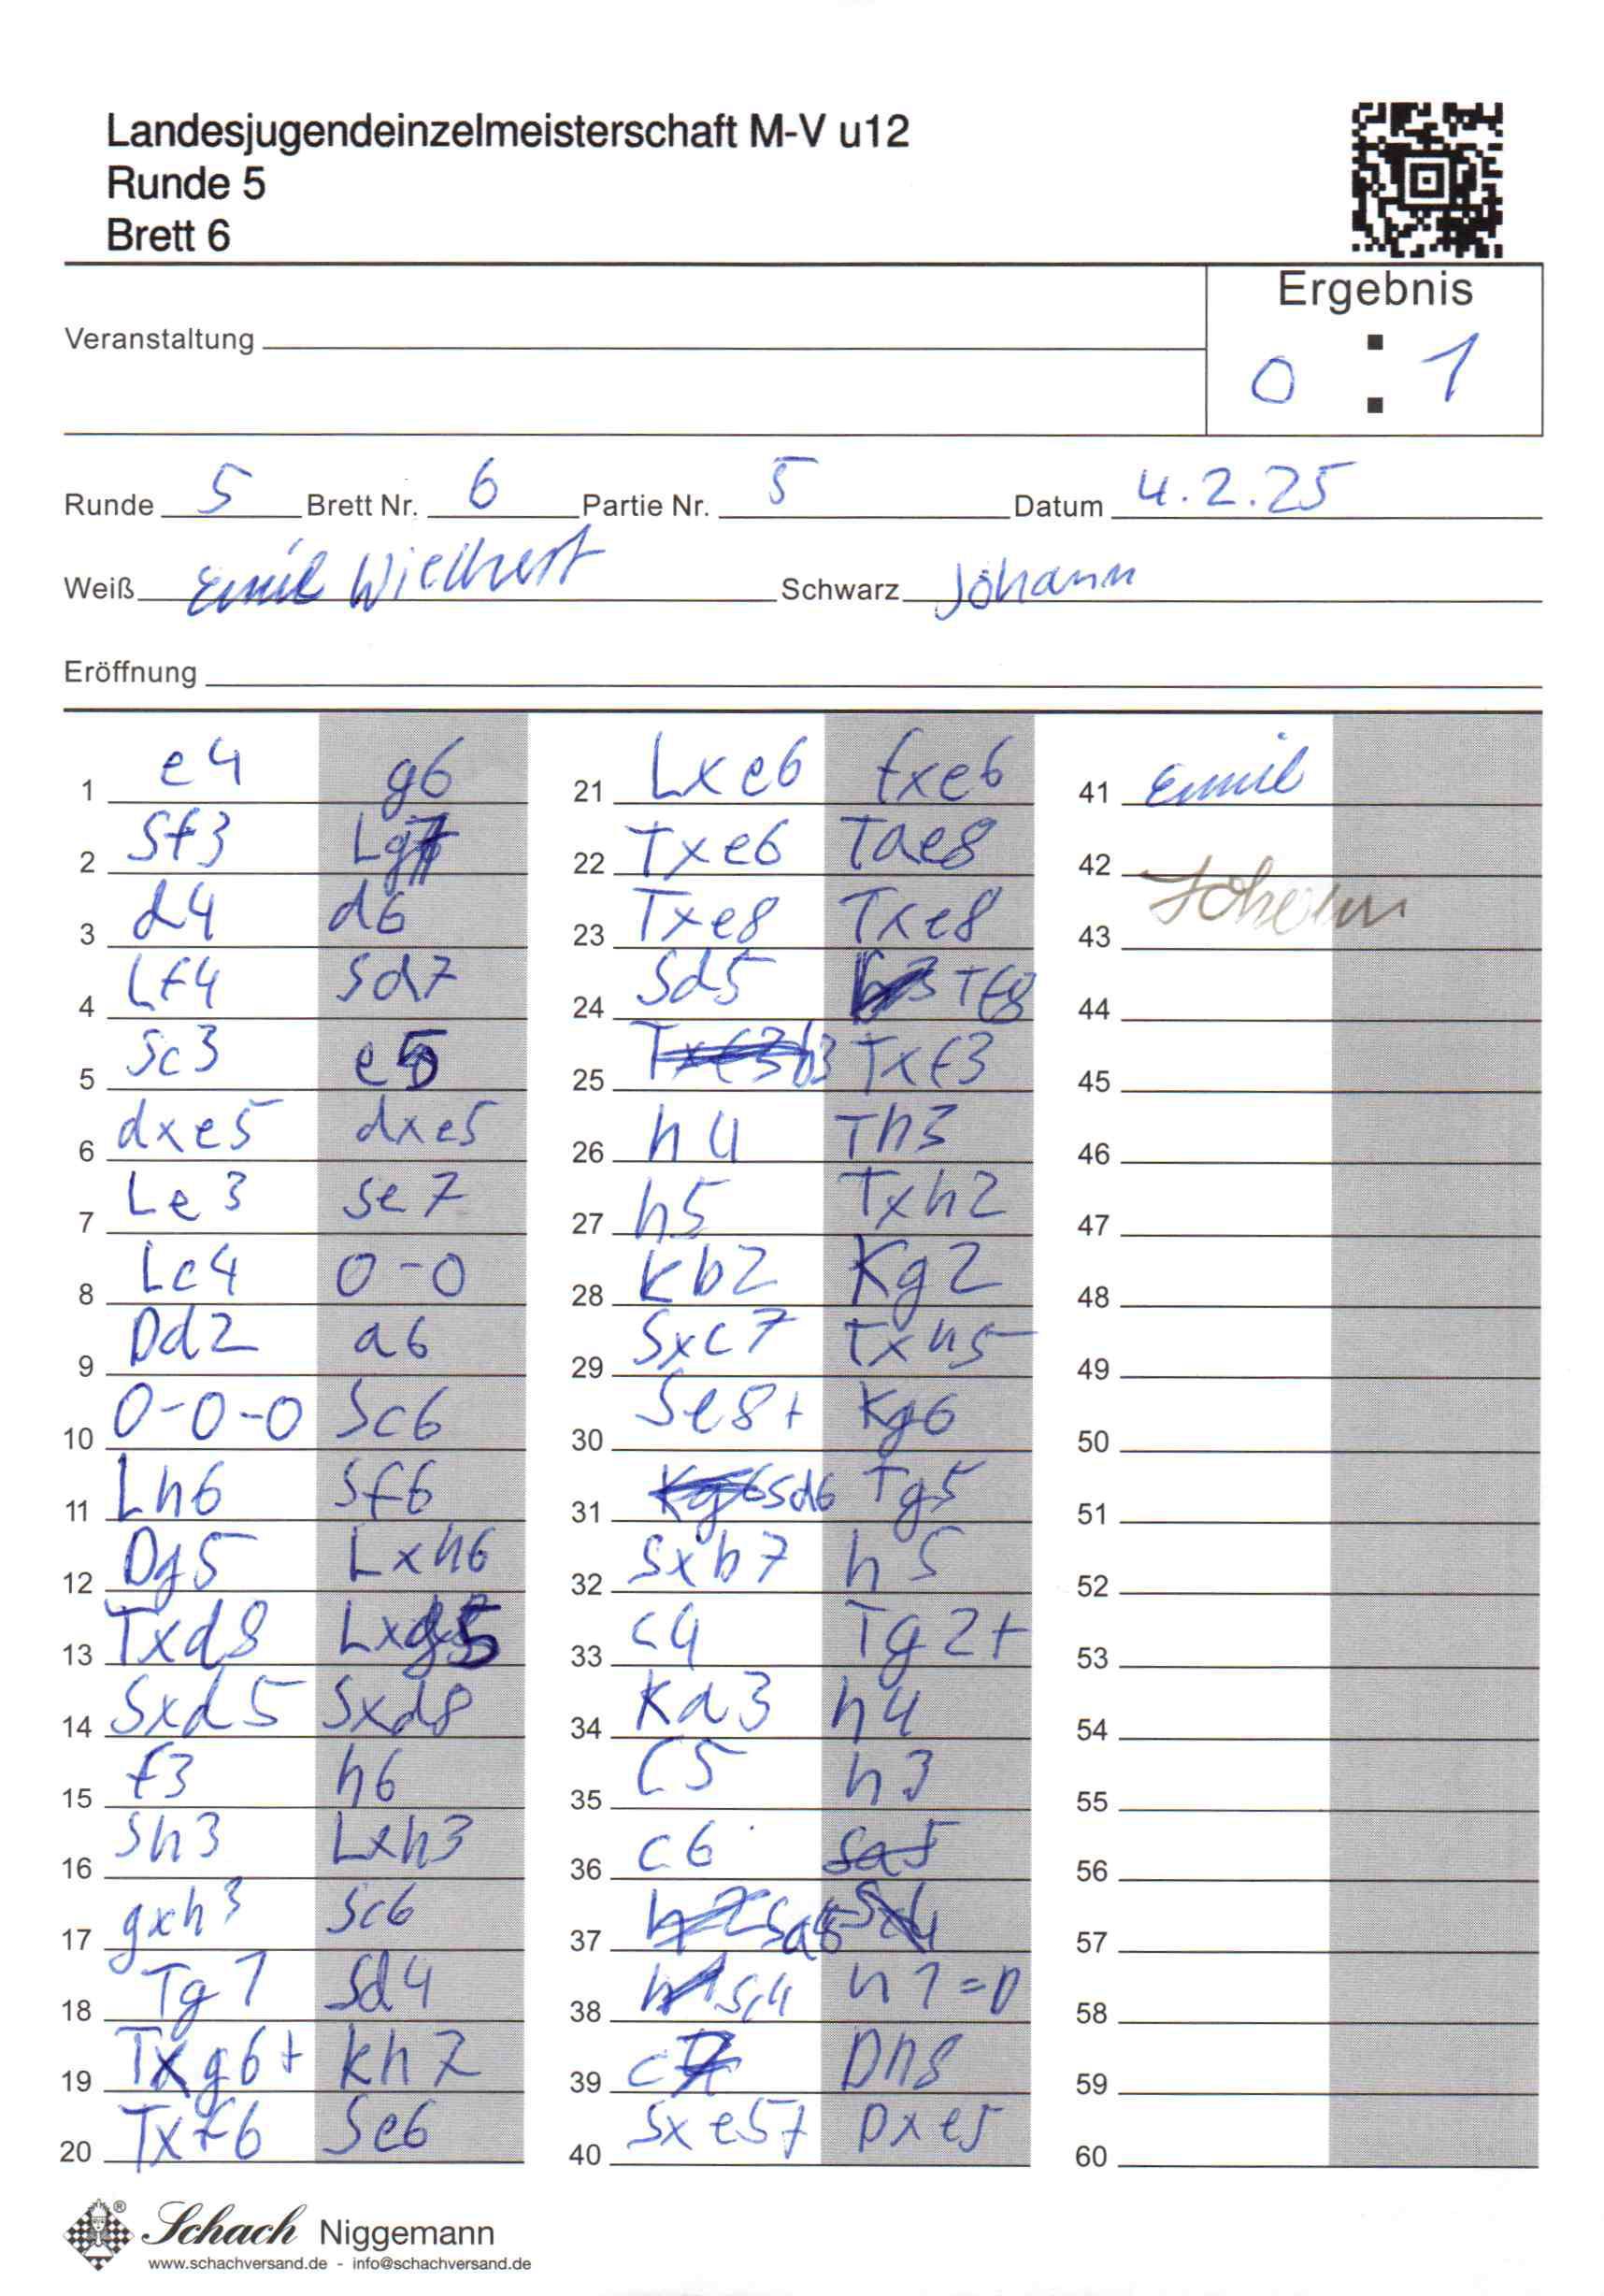 Landesjugendeinzelmeisterschaft M-V u12
Runde 5
Brett 6
Ergebnis
0 : 1
Veranstaltung
Runde 5 Brett Nr. 6 Partie Nr. 5 Datum 4.2.25
Weiß Emil Schwarz Johann
Eröffnung
1 e4 g6
2 Sf3 Lg7
3 d4 d6
4 Lf4 Sd7
5 Sc3 e5
6 dxe5 dxe5
7 Le3 Se7
8 Lc4 0-0
9 Dd2 a6
10 0-0-0 Sc6
11 Lh6 Sf6
12 Dg5 Lxh6
13 Txd8 Lxg5
14 Sxd5 Sxd8
15 f3 h6
16 Sh3 Lxh3
17 gxh3 Sc6
18 Tg1 Sd4
19 Txg6+ Kh7
20 Txf6 Se6
21 Lxe6 fxe6
22 Txe6 Tae8
23 Txe8 Txe8
24 Sd5 Tf8
25 b3 Txf3
26 h4 Th3
27 h5 Txh2
28 Kb2 Kg2
29 Sxc7 Txh5
30 Se8+ Kg6
31 Sd6 Tg5
32 Sxb7 h5
33 c4 Tg2+
34 Ka3 h4
35 c5 h3
36 c6 Sa5
37 Sa5
38 Sc4 h1=D
39 c7 Dh8
40 Sxe5 Dxe5
41 Emil
42 Johann
43
44
45
46
47
48
49
50
51
52
53
54
55
56
57
58
59
60
Schach Niggemann
www.schachversand.de - info@schachversand.de